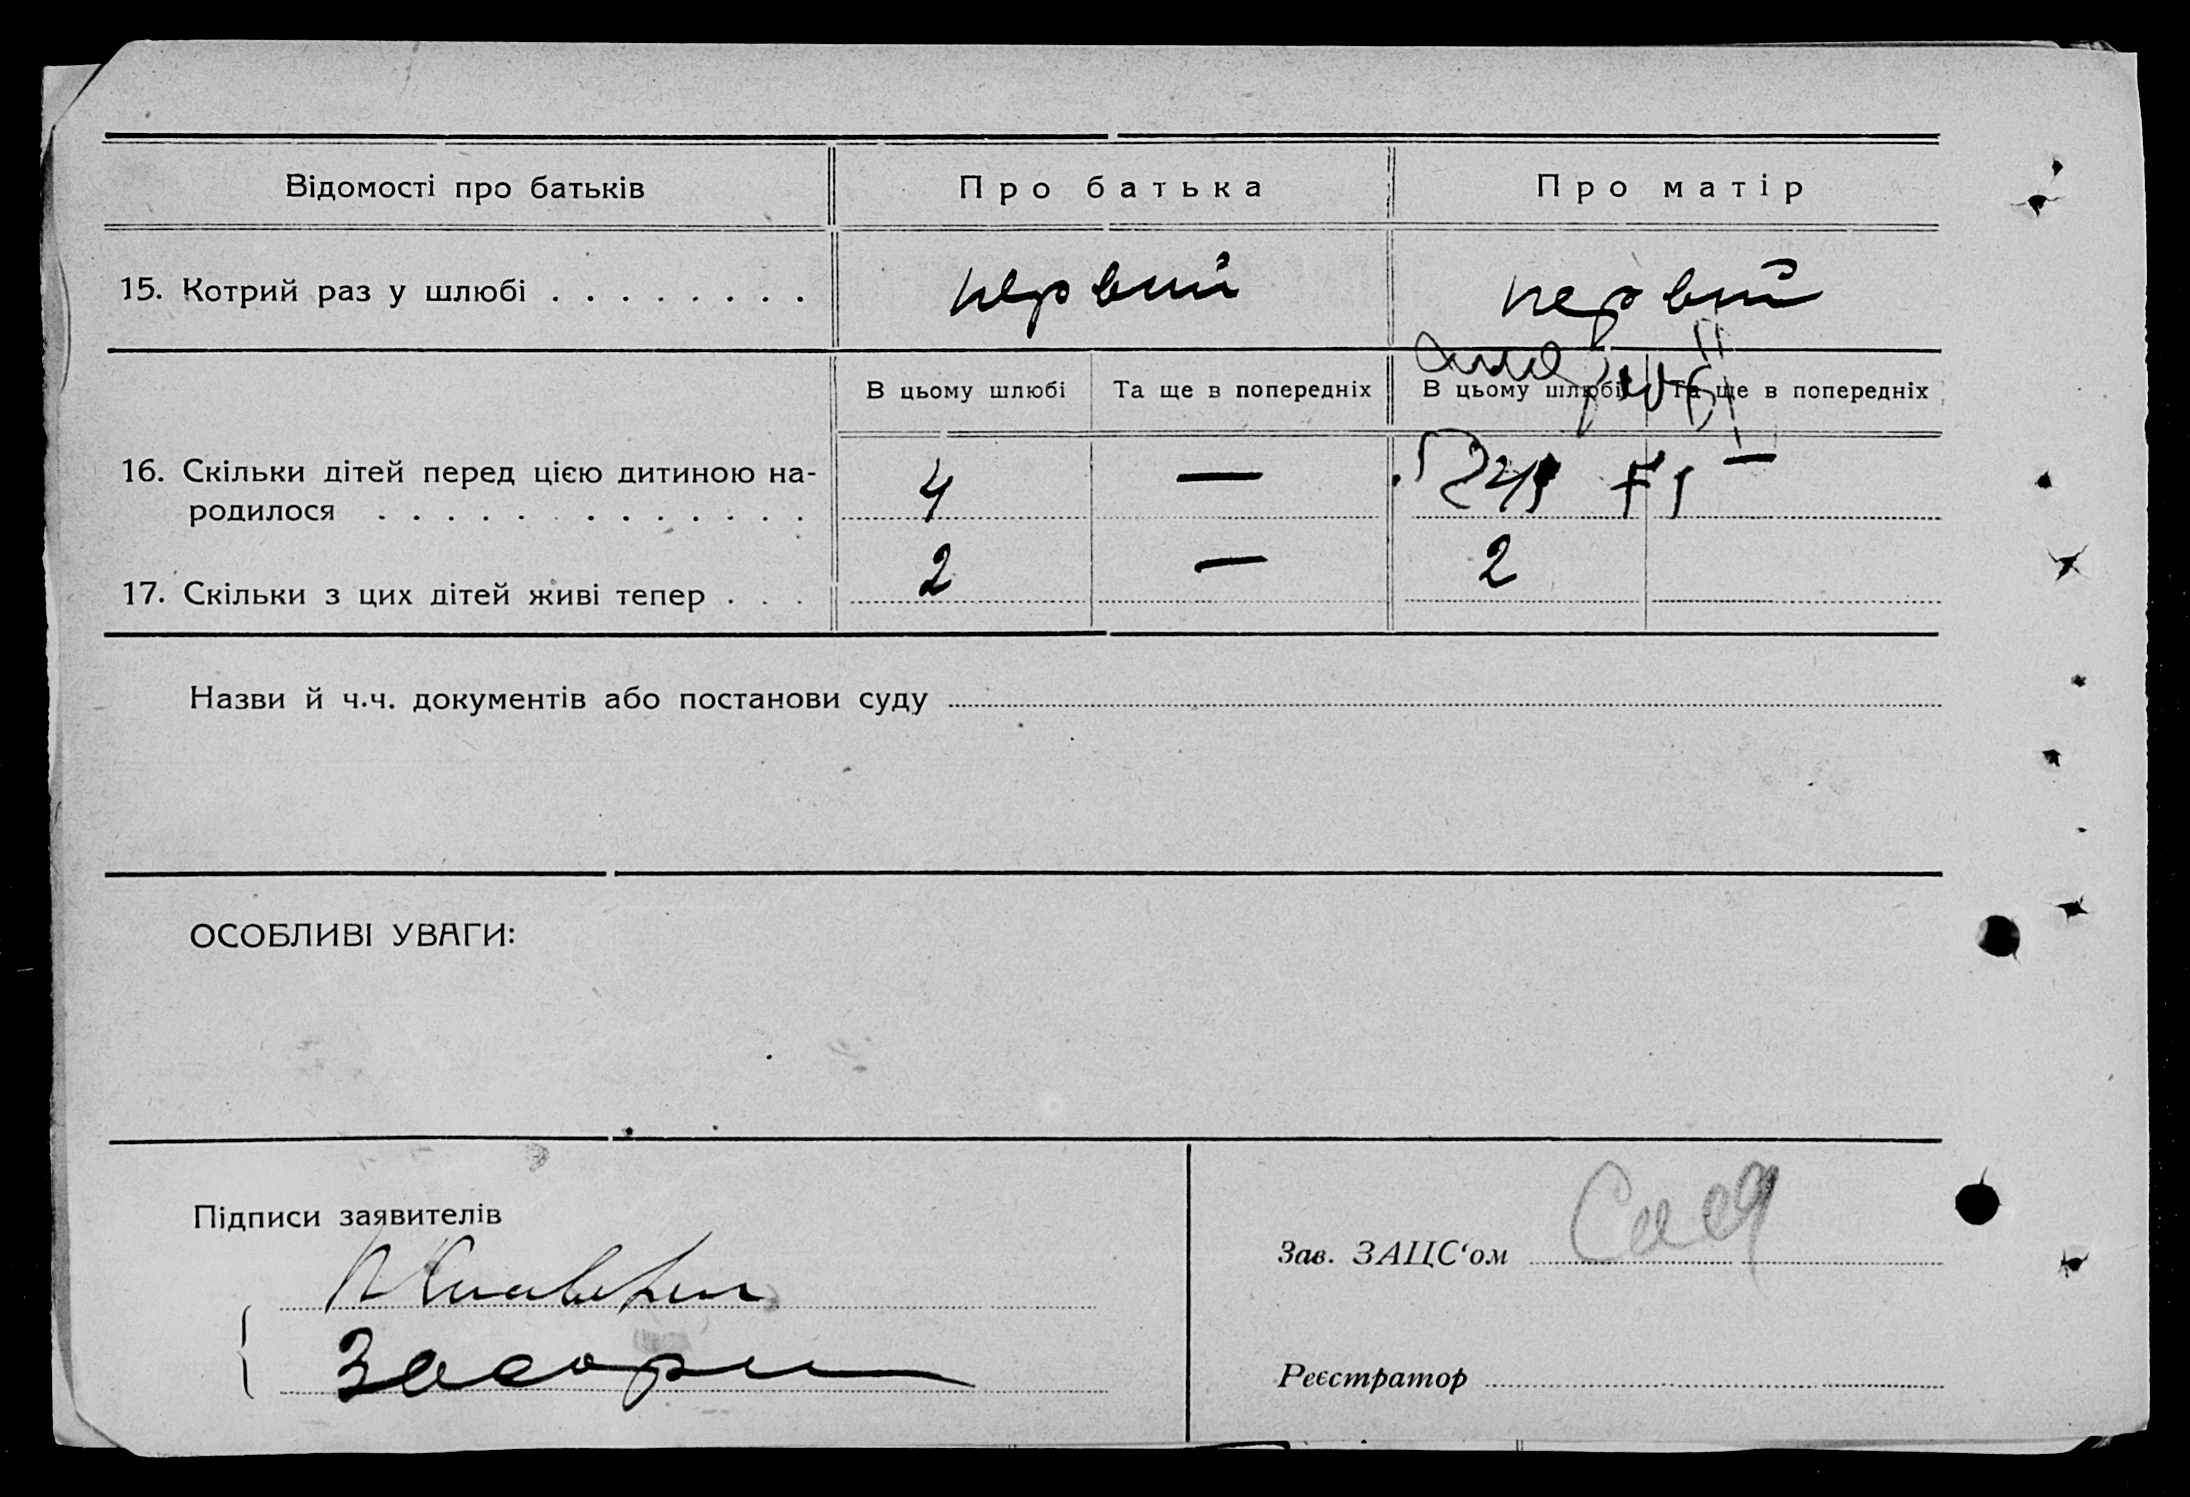 Відомості про батьків
Про батька
Про матір
15. Котрий раз у шлюбі . . . . . . . .
первий
первий
В цьому шлюбі
Та ще в попередніх
В цьому шлюбі
Та ще в попередніх
16. Скільки дітей перед цією дитиною на-
родилося . . . . . . . . . . . . .
4
—
—
17. Скільки з цих дітей живі тепер . . .
2
—
2
Назви й ч.ч. документів або постанови суду
ОСОБЛИВІ УВАГИ:
Підписи заявителів
Зав. ЗАЦС‘ом
Реєстратор